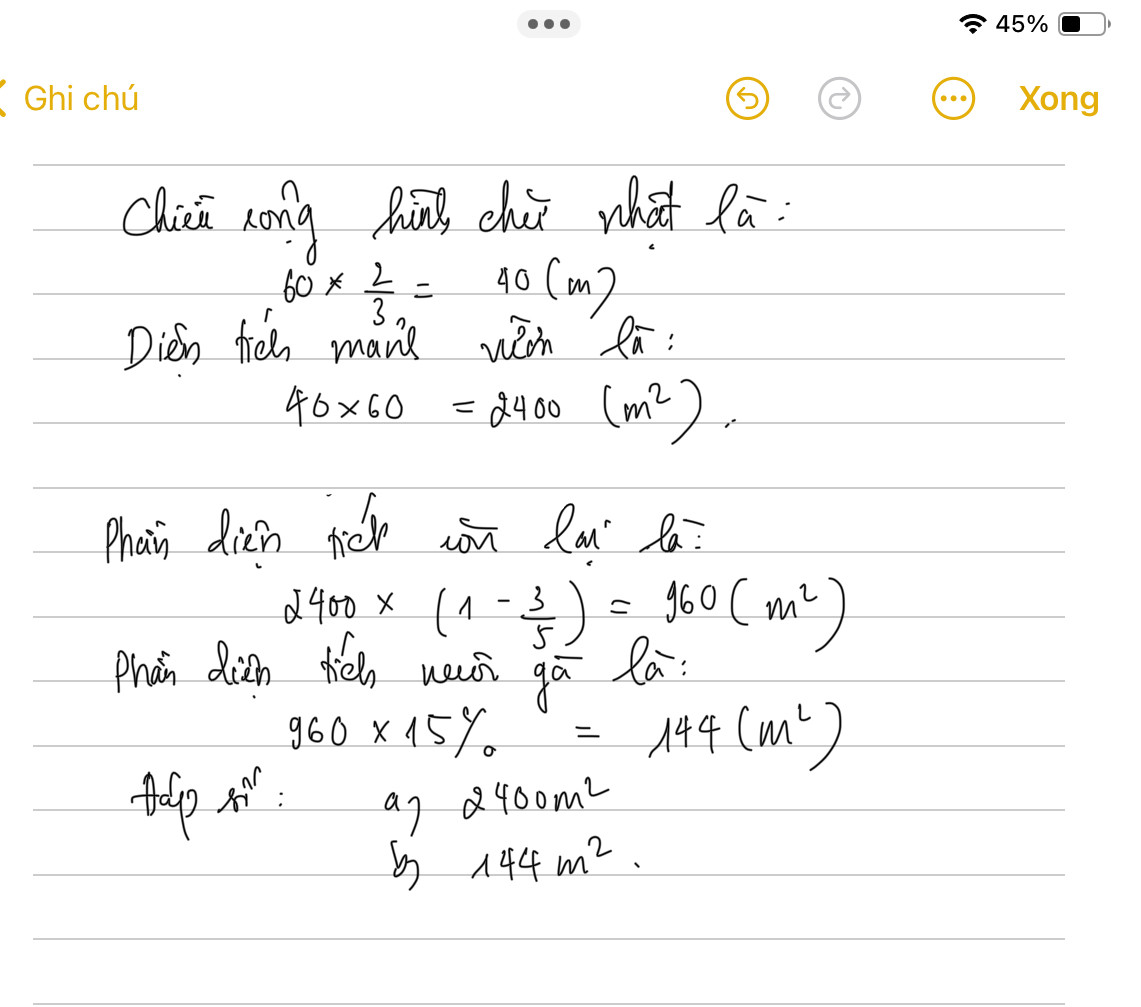 45%
Ghi chú
Xong
Chiều rộng hình chữ nhật là:
60 × 2/3 = 40 (m)
Diện tích mảnh vườn là:
40 × 60 = 2400 (m²).
Phần diện tích còn lại là:
2400 × (1 - 3/5) = 960 (m²)
Phần diện tích nuôi gà là:
960 × 15% = 144 (m²)
Đáp số: a) 2400m²
b) 144 m².